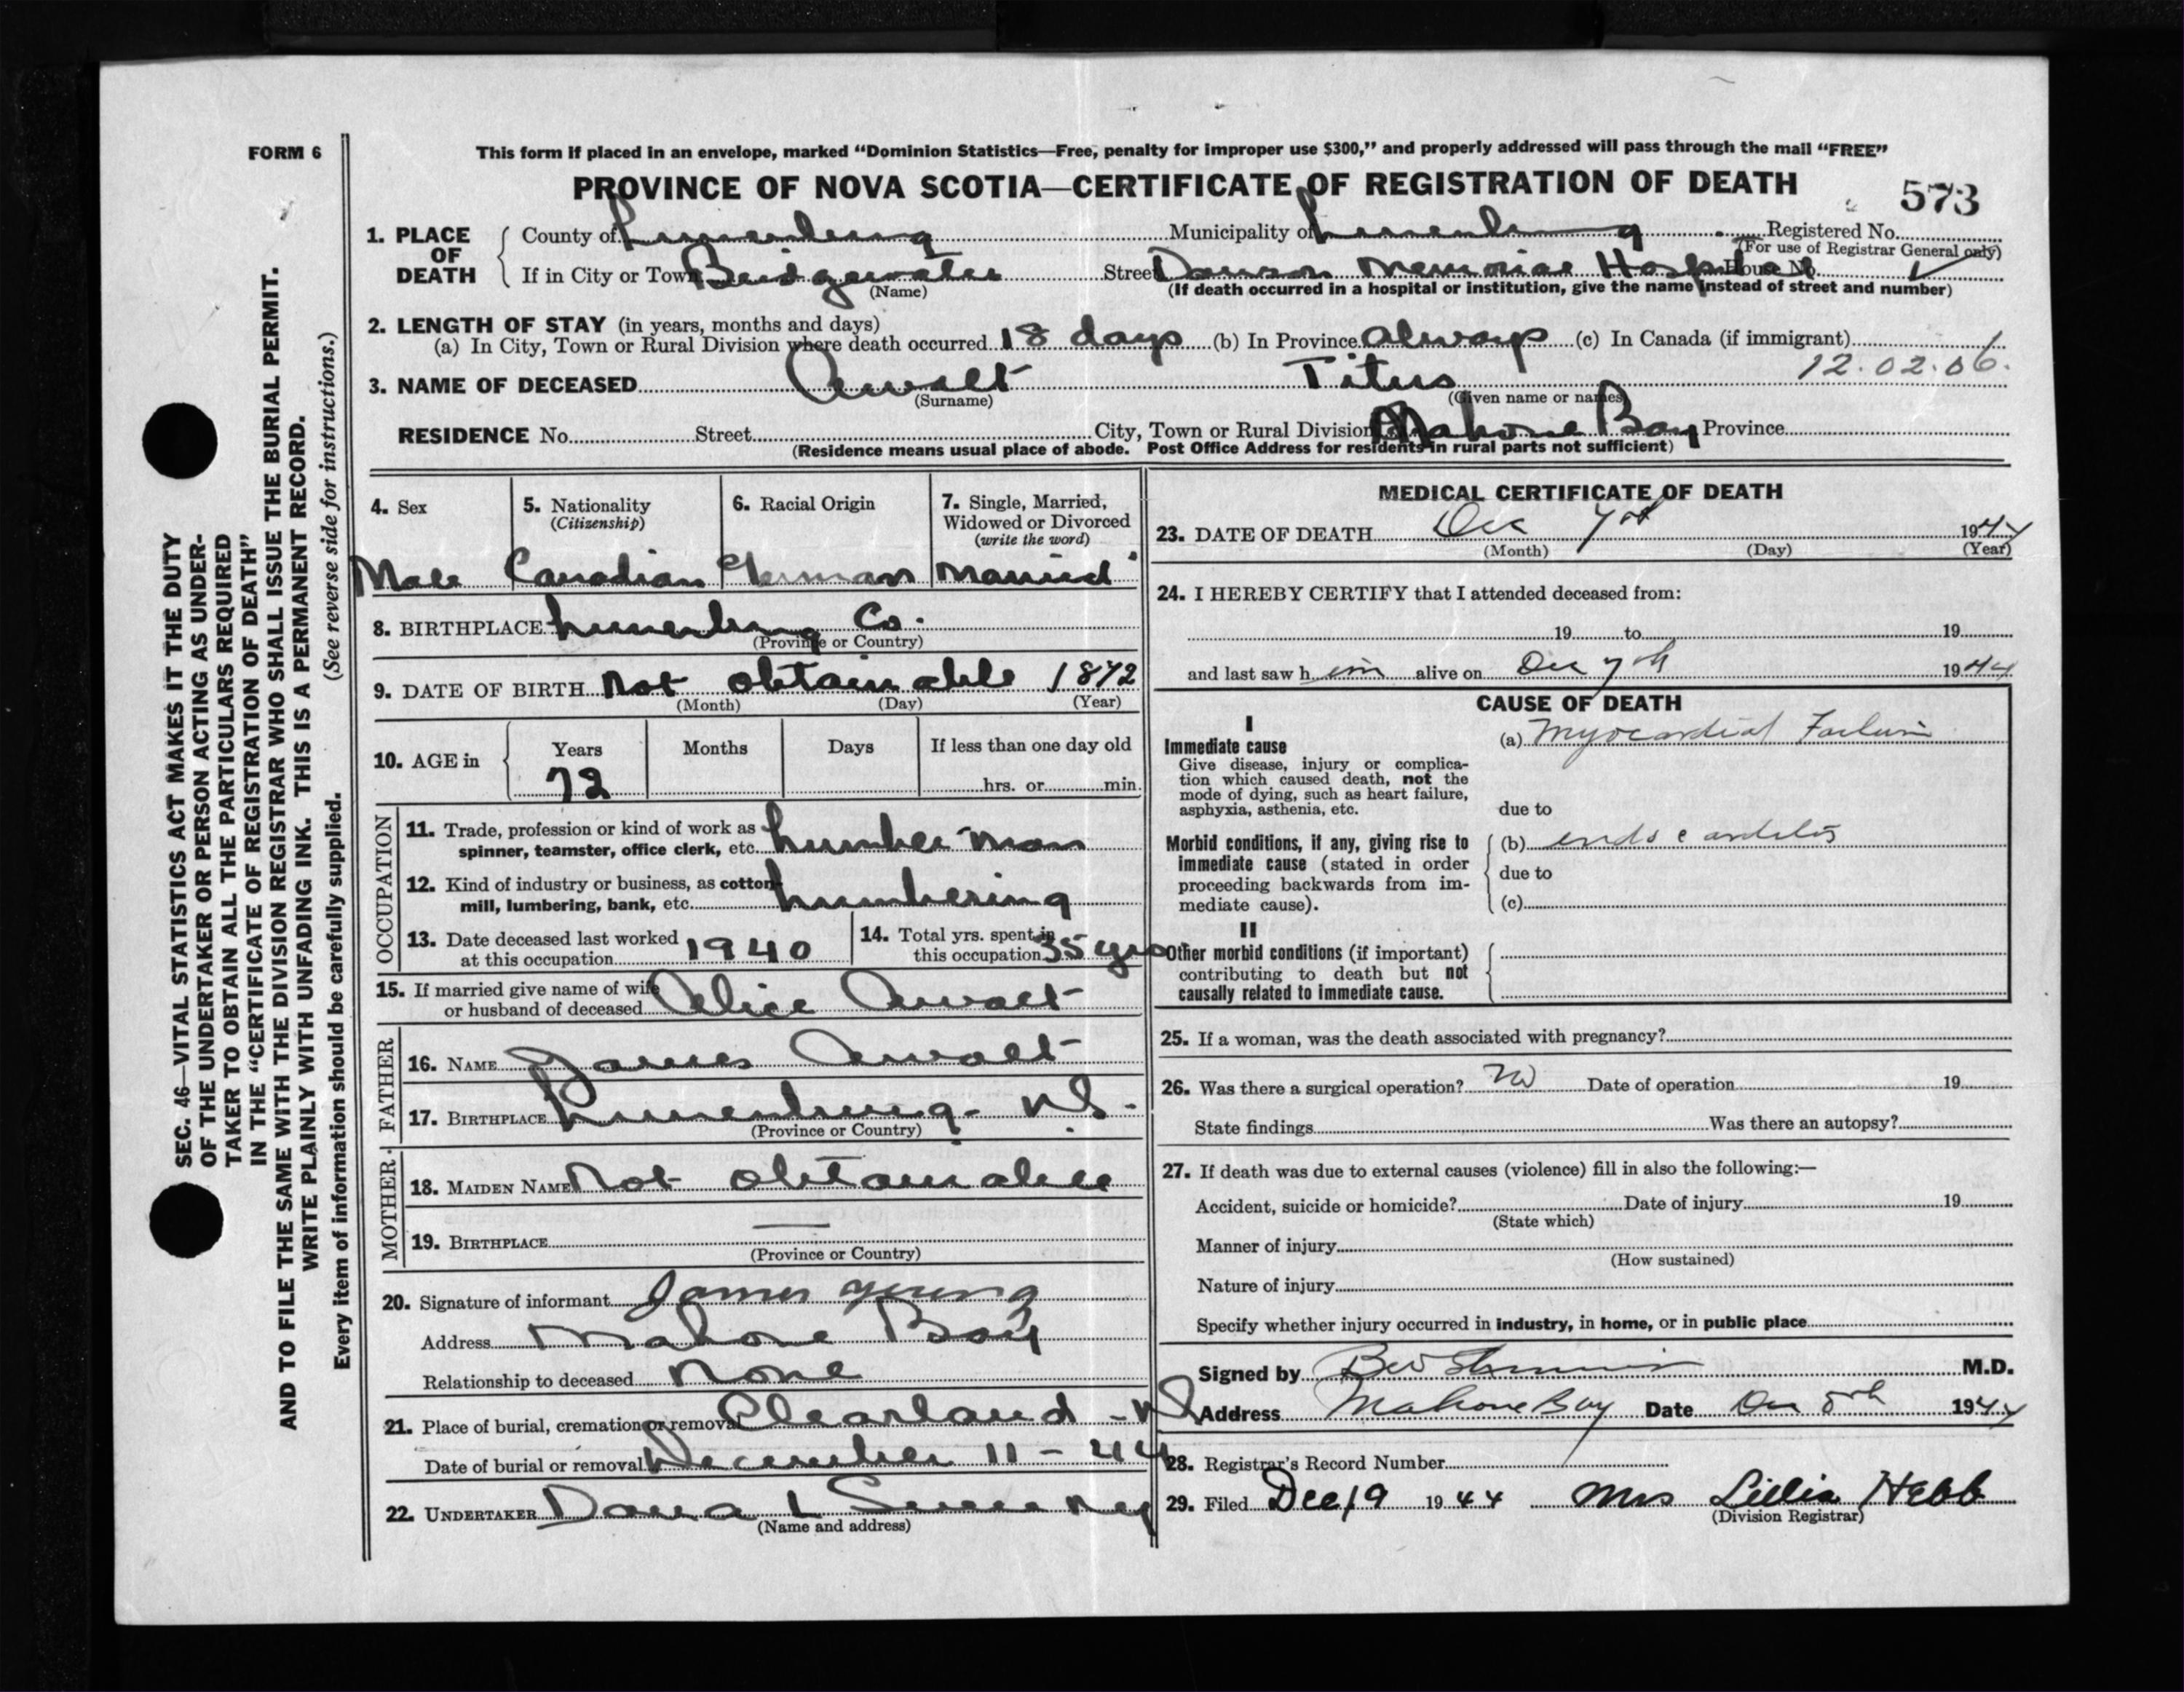 FORM 6
This form if placed in an envelope, marked “Dominion Statistics—Free, penalty for improper use $300,” and properly addressed will pass through the mail “FREE”
PROVINCE OF NOVA SCOTIA—CERTIFICATE OF REGISTRATION OF DEATH
573
1. PLACE OF DEATH
County of Lunenburg Municipality of Lunenburg Registered No.
(For use of Registrar General only)
If in City or Town Bridgewater Street Dawson Memorial Hospital House No.
(Name)
(If death occurred in a hospital or institution, give the name instead of street and number)
2. LENGTH OF STAY (in years, months and days)
(a) In City, Town or Rural Division where death occurred 18 days (b) In Province always (c) In Canada (if immigrant)
12.02.06.
3. NAME OF DECEASED Awalt Titus
(Surname) (Given name or names)
RESIDENCE No. Street City, Town or Rural Division Mahone Bay Province
(Residence means usual place of abode. Post Office Address for residents in rural parts not sufficient)
4. Sex
Male
5. Nationality
(Citizenship)
Canadian
6. Racial Origin
German
7. Single, Married,
Widowed or Divorced
(write the word)
Married
8. BIRTHPLACE Lunenburg Co.
(Province or Country)
9. DATE OF BIRTH Not obtainable 1872
(Month) (Day) (Year)
10. AGE in
Years Months Days If less than one day old
72 hrs. or min.
OCCUPATION
11. Trade, profession or kind of work as
spinner, teamster, office clerk, etc. Lumber man
12. Kind of industry or business, as cotton
mill, lumbering, bank, etc. Lumbering
13. Date deceased last worked
at this occupation 1940
14. Total yrs. spent in
this occupation 35 yrs
15. If married give name of wife
or husband of deceased Alice Awalt
FATHER
16. NAME James Awalt
17. BIRTHPLACE Lunenburg - N.S.
(Province or Country)
MOTHER
18. MAIDEN NAME Not obtainable
19. BIRTHPLACE —
(Province or Country)
20. Signature of informant James Young
Address Mahone Bay
Relationship to deceased None
21. Place of burial, cremation or removal Clearland - NS
Date of burial or removal December 11 - 44
22. UNDERTAKER L Sweeney
(Name and address)
MEDICAL CERTIFICATE OF DEATH
23. DATE OF DEATH Dec 7th 1944
(Month) (Day) (Year)
24. I HEREBY CERTIFY that I attended deceased from:
19 to 19
and last saw him alive on Dec 7th 1944
CAUSE OF DEATH
I
Immediate cause
Give disease, injury or complica-
tion which caused death, not the
mode of dying, such as heart failure,
asphyxia, asthenia, etc.
(a) Myocardial Failure
due to
Morbid conditions, if any, giving rise to
immediate cause (stated in order
proceeding backwards from im-
mediate cause).
(b) endocarditis
due to
(c)
II
Other morbid conditions (if important)
contributing to death but not
causally related to immediate cause.
25. If a woman, was the death associated with pregnancy?
26. Was there a surgical operation? No Date of operation 19
State findings Was there an autopsy?
27. If death was due to external causes (violence) fill in also the following:—
Accident, suicide or homicide? Date of injury 19
(State which)
Manner of injury
(How sustained)
Nature of injury
Specify whether injury occurred in industry, in home, or in public place
Signed by M.D.
Address Mahone Bay Date Dec 8th 1944
28. Registrar's Record Number
29. Filed Dec 19 1944 Mrs Lillia Hebb
(Division Registrar)
SEC. 46—VITAL STATISTICS ACT MAKES IT THE DUTY
OF THE UNDERTAKER OR PERSON ACTING AS UNDER-
TAKER TO OBTAIN ALL THE PARTICULARS REQUIRED
IN THE “CERTIFICATE OF REGISTRATION OF DEATH”
AND TO FILE THE SAME WITH THE DIVISION REGISTRAR WHO SHALL ISSUE THE BURIAL PERMIT.
WRITE PLAINLY WITH UNFADING INK. THIS IS A PERMANENT RECORD.
Every item of information should be carefully supplied. (See reverse side for instructions.)